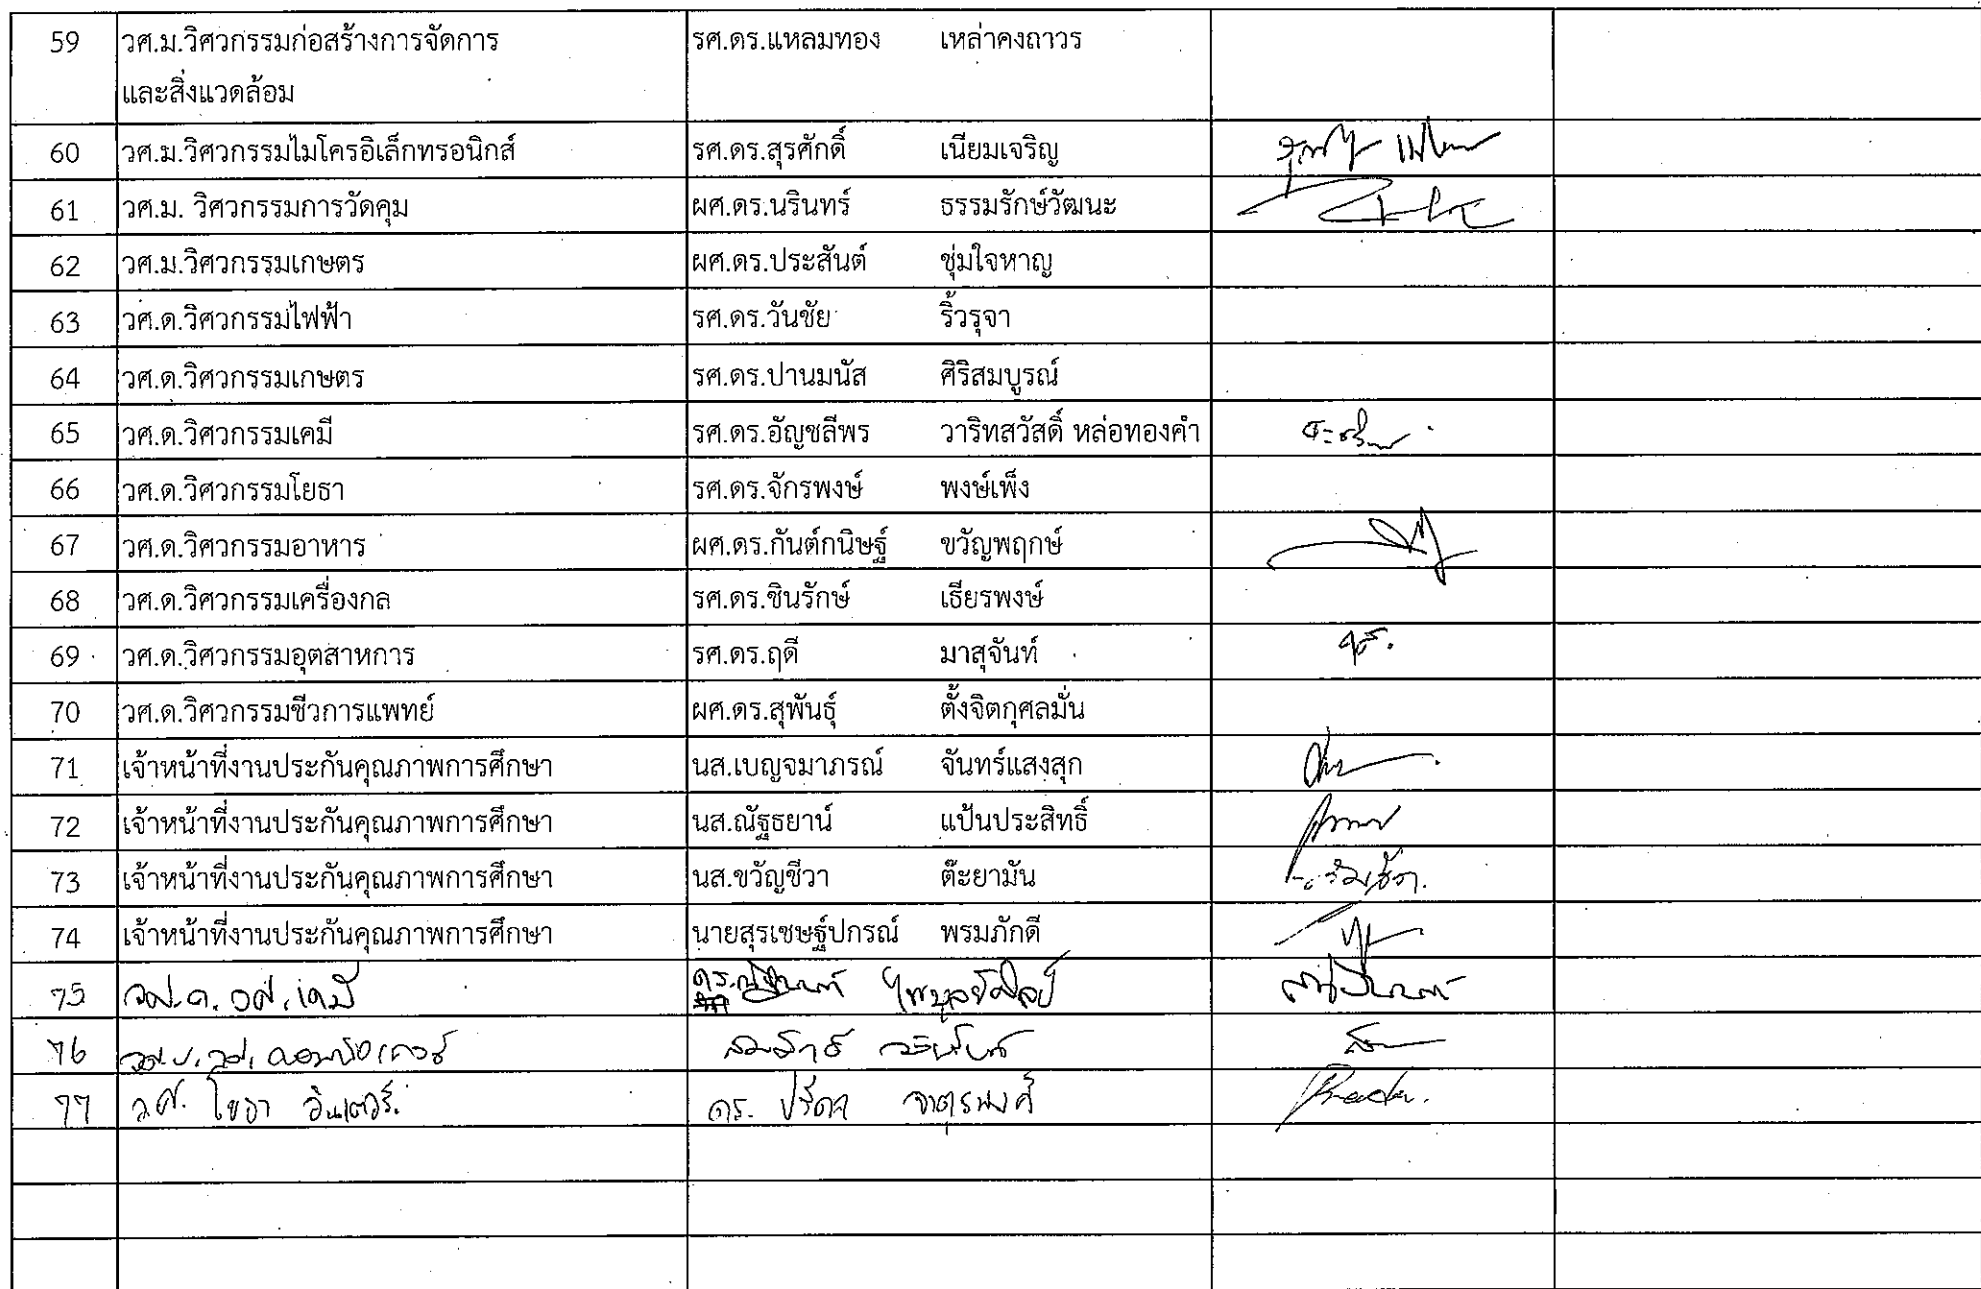 59 วศ.ม.วิศวกรรมก่อสร้างการจัดการ รศ.ดร.แหลมทอง เหล่าคงถาวร
และสิ่งแวดล้อม
60 วศ.ม.วิศวกรรมไมโครอิเล็กทรอนิกส์ รศ.ดร.สุรศักดิ์ เนียมเจริญ
61 วศ.ม. วิศวกรรมการวัดคุม ผศ.ดร.นรินทร์ ธรรมรักษ์วัฒนะ
62 วศ.ม.วิศวกรรมเกษตร ผศ.ดร.ประสันต์ ชุ่มใจหาญ
63 วศ.ด.วิศวกรรมไฟฟ้า รศ.ดร.วันชัย ริ้วรุจา
64 วศ.ด.วิศวกรรมเกษตร รศ.ดร.ปานมนัส ศิริสมบูรณ์
65 วศ.ด.วิศวกรรมเคมี รศ.ดร.อัญชลีพร วาริทสวัสดิ์ หล่อทองคำ
66 วศ.ด.วิศวกรรมโยธา รศ.ดร.จักรพงษ์ พงษ์เพ็ง
67 วศ.ด.วิศวกรรมอาหาร ผศ.ดร.กันต์กนิษฐ์ ขวัญพฤกษ์
68 วศ.ด.วิศวกรรมเครื่องกล รศ.ดร.ชินรักษ์ เธียรพงษ์
69 วศ.ด.วิศวกรรมอุตสาหการ รศ.ดร.ฤดี มาสุจันท์
70 วศ.ด.วิศวกรรมชีวการแพทย์ ผศ.ดร.สุพันธุ์ ตั้งจิตกุศลมั่น
71 เจ้าหน้าที่งานประกันคุณภาพการศึกษา นส.เบญจมาภรณ์ จันทร์แสงสุก
72 เจ้าหน้าที่งานประกันคุณภาพการศึกษา นส.ณัฐธยาน์ แป้นประสิทธิ์
73 เจ้าหน้าที่งานประกันคุณภาพการศึกษา นส.ขวัญชีวา ต๊ะยามัน
74 เจ้าหน้าที่งานประกันคุณภาพการศึกษา นายสุรเชษฐ์ปกรณ์ พรมภักดี
75 วศ.ด. วศ.เคมี ดร.
76
77 วศ. โยธา อินเตอร์. ดร. ปรีดา จาตุรพงศ์